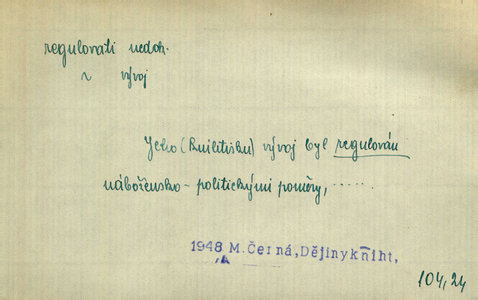 regulovati nedok.
~ vývoj
Jeho (knihtisku) vývoj byl regulován
nábožensko-politickými poměry, ......
1948 M. Černá, Dějiny kniht,
104,24